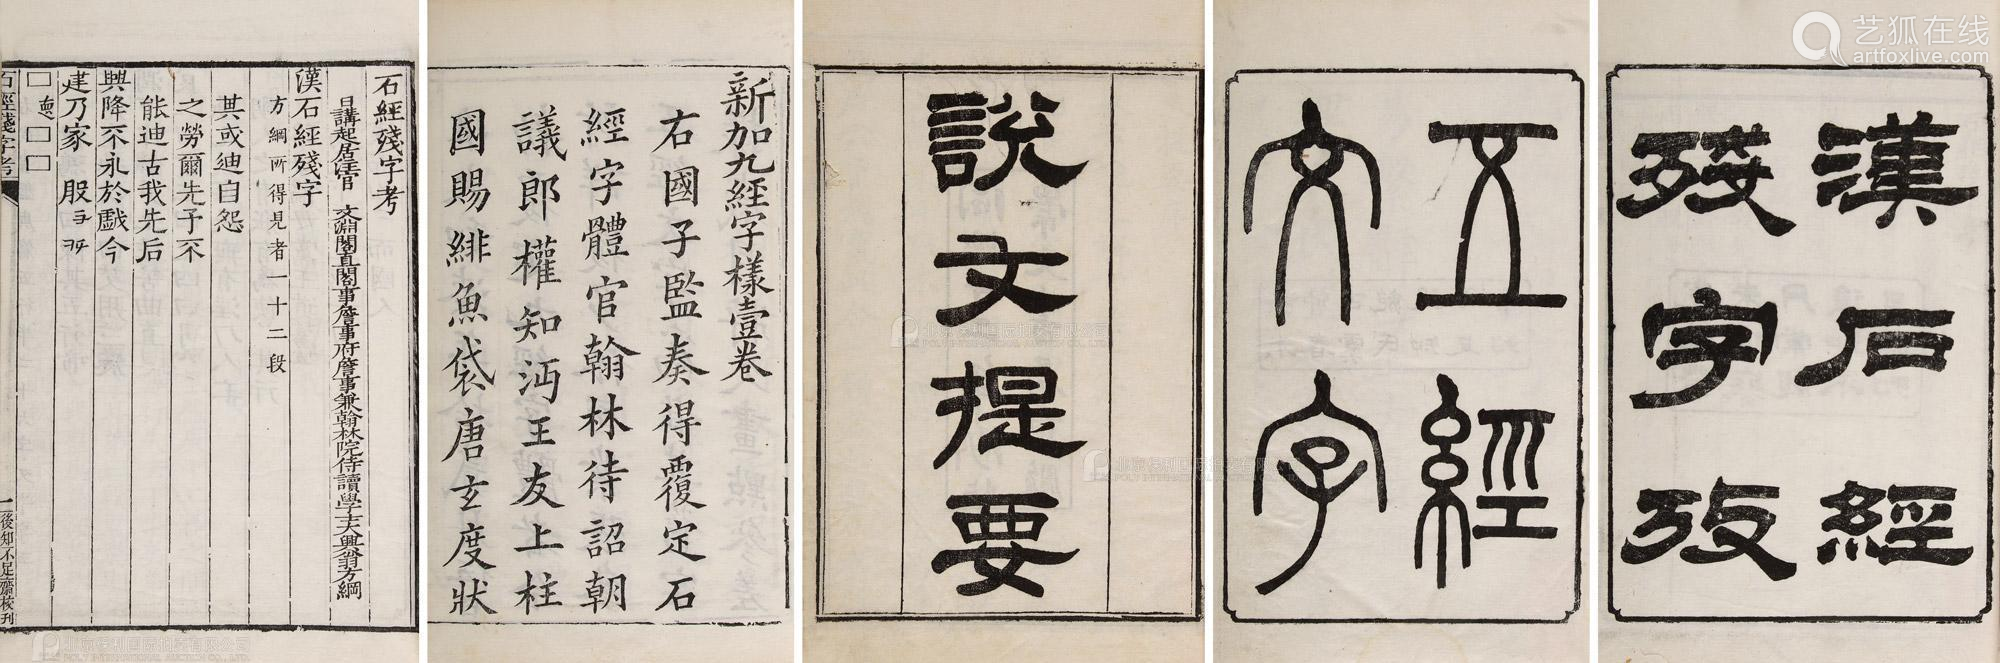 石經殘字考
日講起居注官 文淵閣直閣事詹事府詹事兼翰林院侍讀學士大興翁方綱
漢石經殘字
方綱所得見者一十二段
其或迪自怨
之勞爾先予不
能迪古我先后
興降不永於戲今
建乃家
石經殘字考
後知不足齋校刊
新加九經字樣壹卷
右國子監奏得覆定石
經字體官翰林待詔朝
議郎權知沔王友上柱
國賜緋魚袋唐玄度狀
說文提要
五經
文字
漢石經
殘字攷
艺狐在线
artfoxlive.com
北京保利国际拍卖有限公司
POLY INTERNATIONAL AUCTION CO.,LTD.